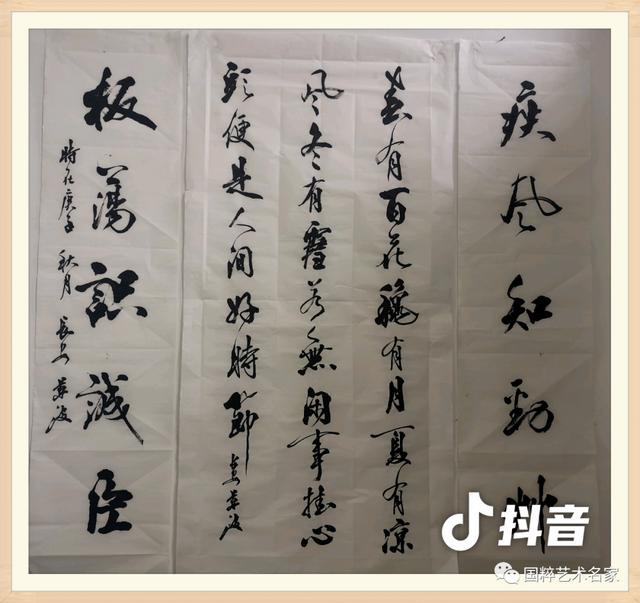 疾风知劲艸
春有百花龝有月夏有凉
风冬有雪若无闲事挂心
头便是人间好时節
板荡识诚臣
時在庚子秋月
抖音
国粹艺术名家